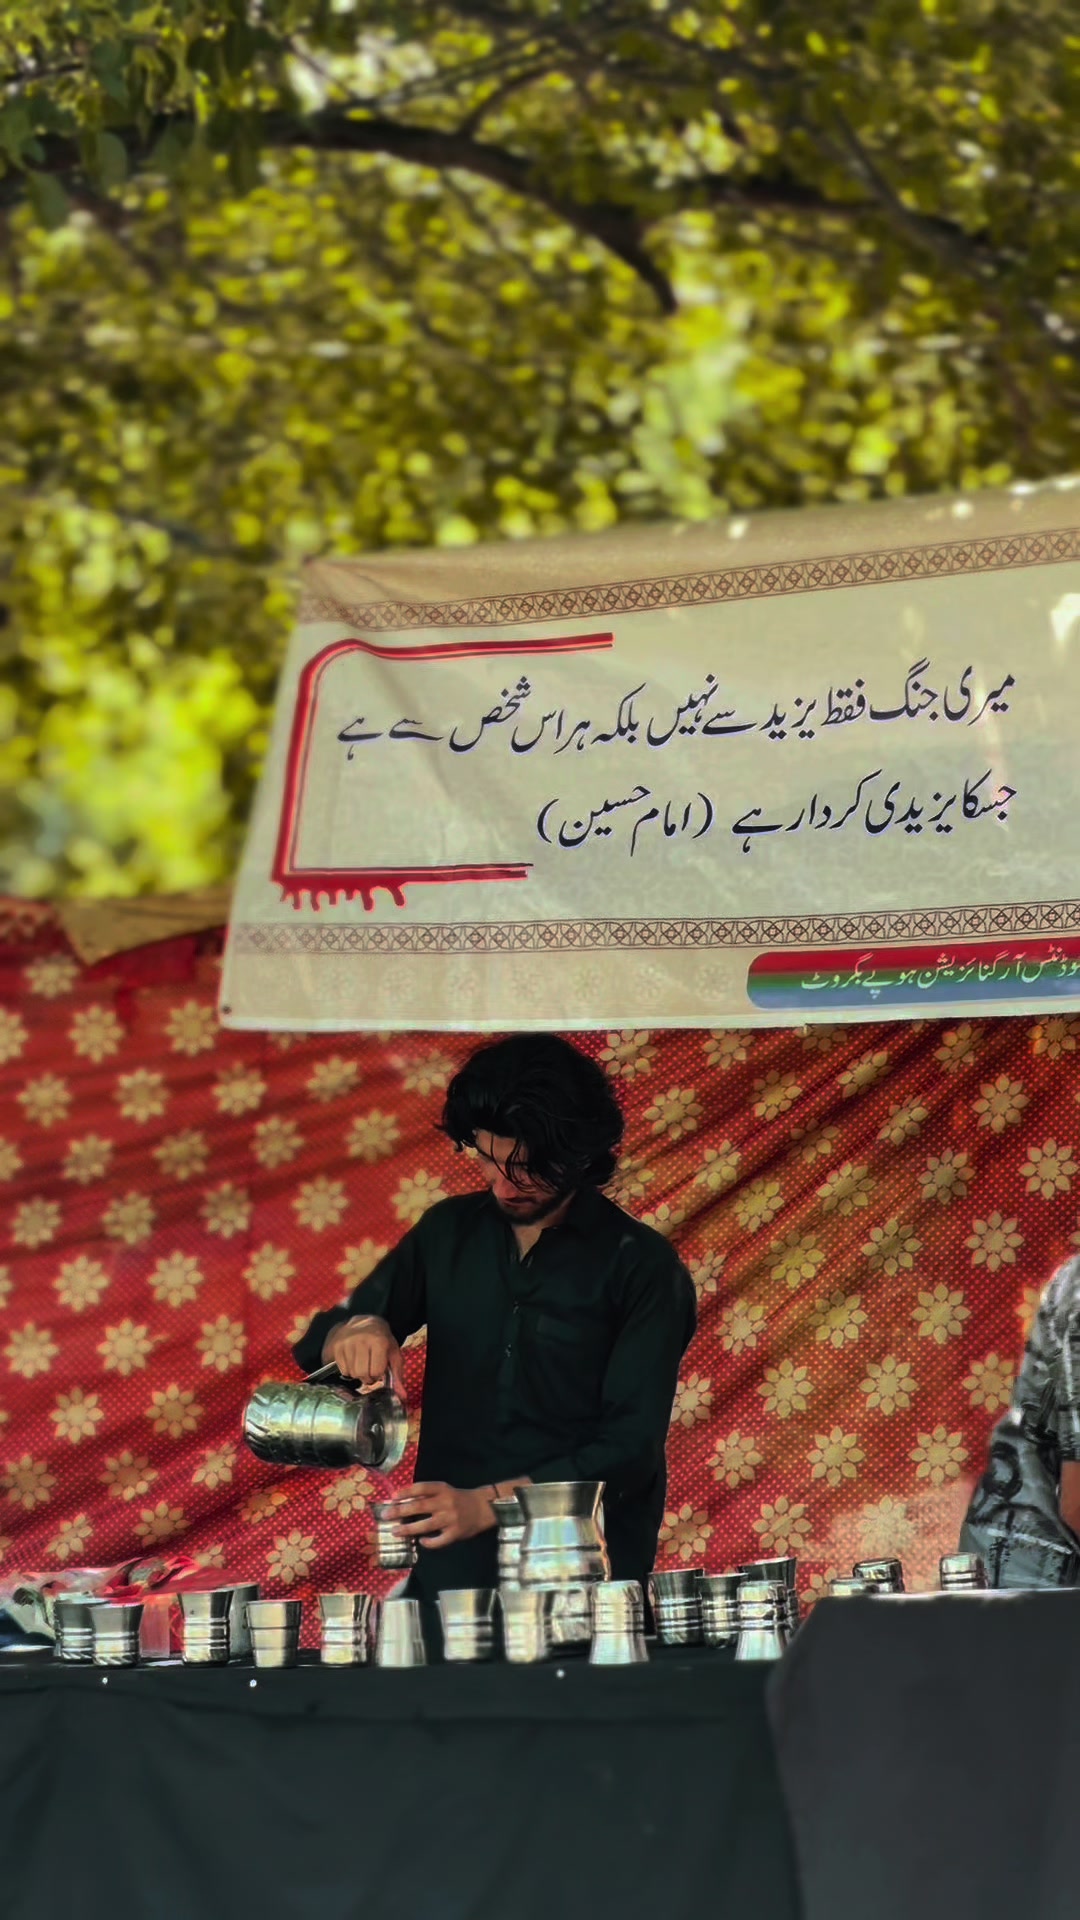 میری جنگ فقط یزید سے نہیں بلکہ ہر اس شخص سے ہے
جسکا یزیدی کردار ہے (امام حسین)
آرگنائزیشن ہوپے بگروٹ